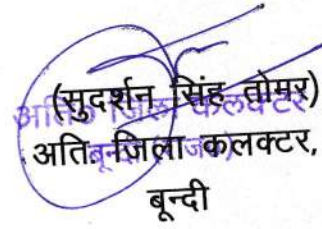 (सुदर्शन सिंह तोमर)
अति. जिला कलक्टर
अति. जिला कलक्टर,
बून्दी (राज.)
बून्दी